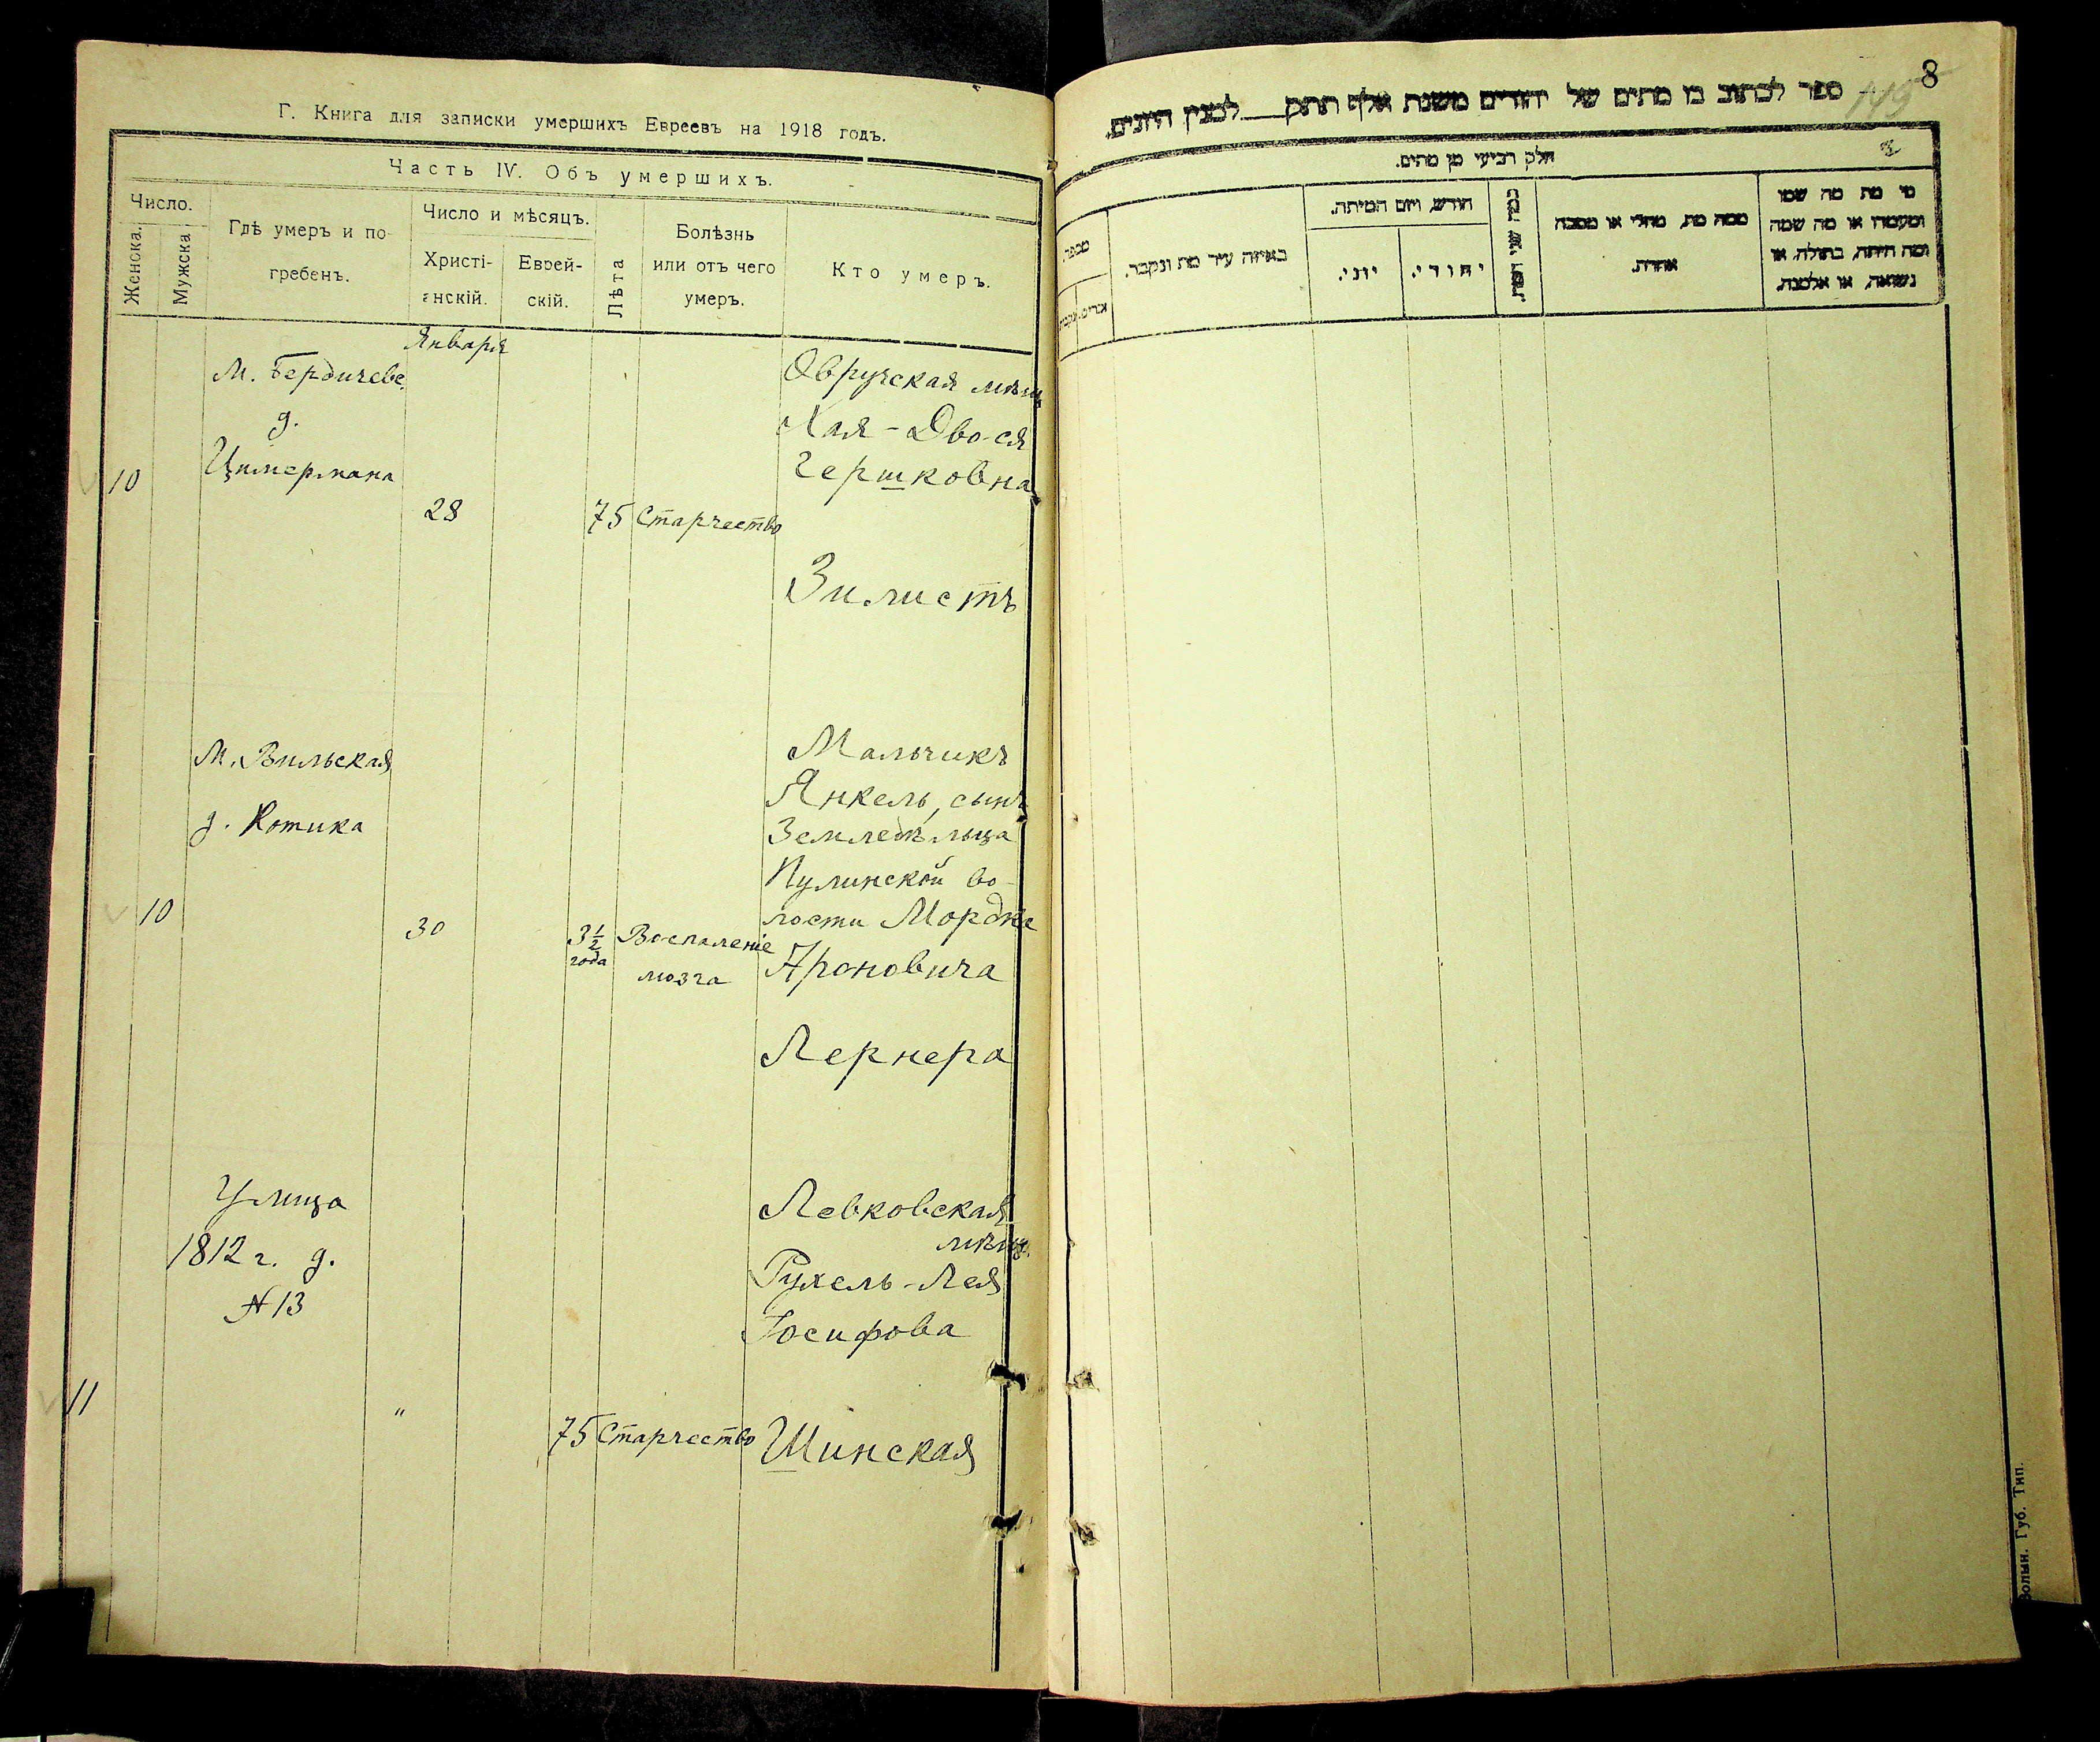 Г. Книга для записки умершихъ Евреевъ на 1918 годъ.
Часть IV. Объ умершихъ.
Число.
Женска.
Мужска
Гдѣ умеръ и по-
гребенъ.
Число и мѣсяцъ.
Христі-
анскій.
Еврей-
скій.
Лѣта
Болѣзнь
или отъ чего
умеръ.
Кто умеръ.
Января
10
М. Бердичевс.
д.
Цимермана
28
75
Старчество
Овручская мѣщ
Хая-Двося
Гершковна
Зилистъ
10
М. Вильская
д. Котика
30
3½
года
Воспаленіе
мозга
Мальчикъ
Янкель, сынъ
Земледѣльца
Пулинской во-
лости Мордка
Ароновича
Лернера
11
Улица
1812 г. д.
№13
"
75
Старчество
Левковская
мѣщ.
Рухель-Лея
Іосифова
Шинская
8
149
ספר לכתוב בו מתים של יהודים משנת אלף תתק לסנין היונים.
חלק רביעי מן מתים.
מספר
באיזה עיר מת ונקבר.
חודש, ויום המיתה.
יוני.
יהודי.
כמה שני המת.
ממה מת, מחלי או מסבה
אחרת.
מי מת מה שמו
ומעמדו או מה שמה
ומה היתה, בתולה, או
נשואה, או אלמנה.
Волын. Губ. Тип.